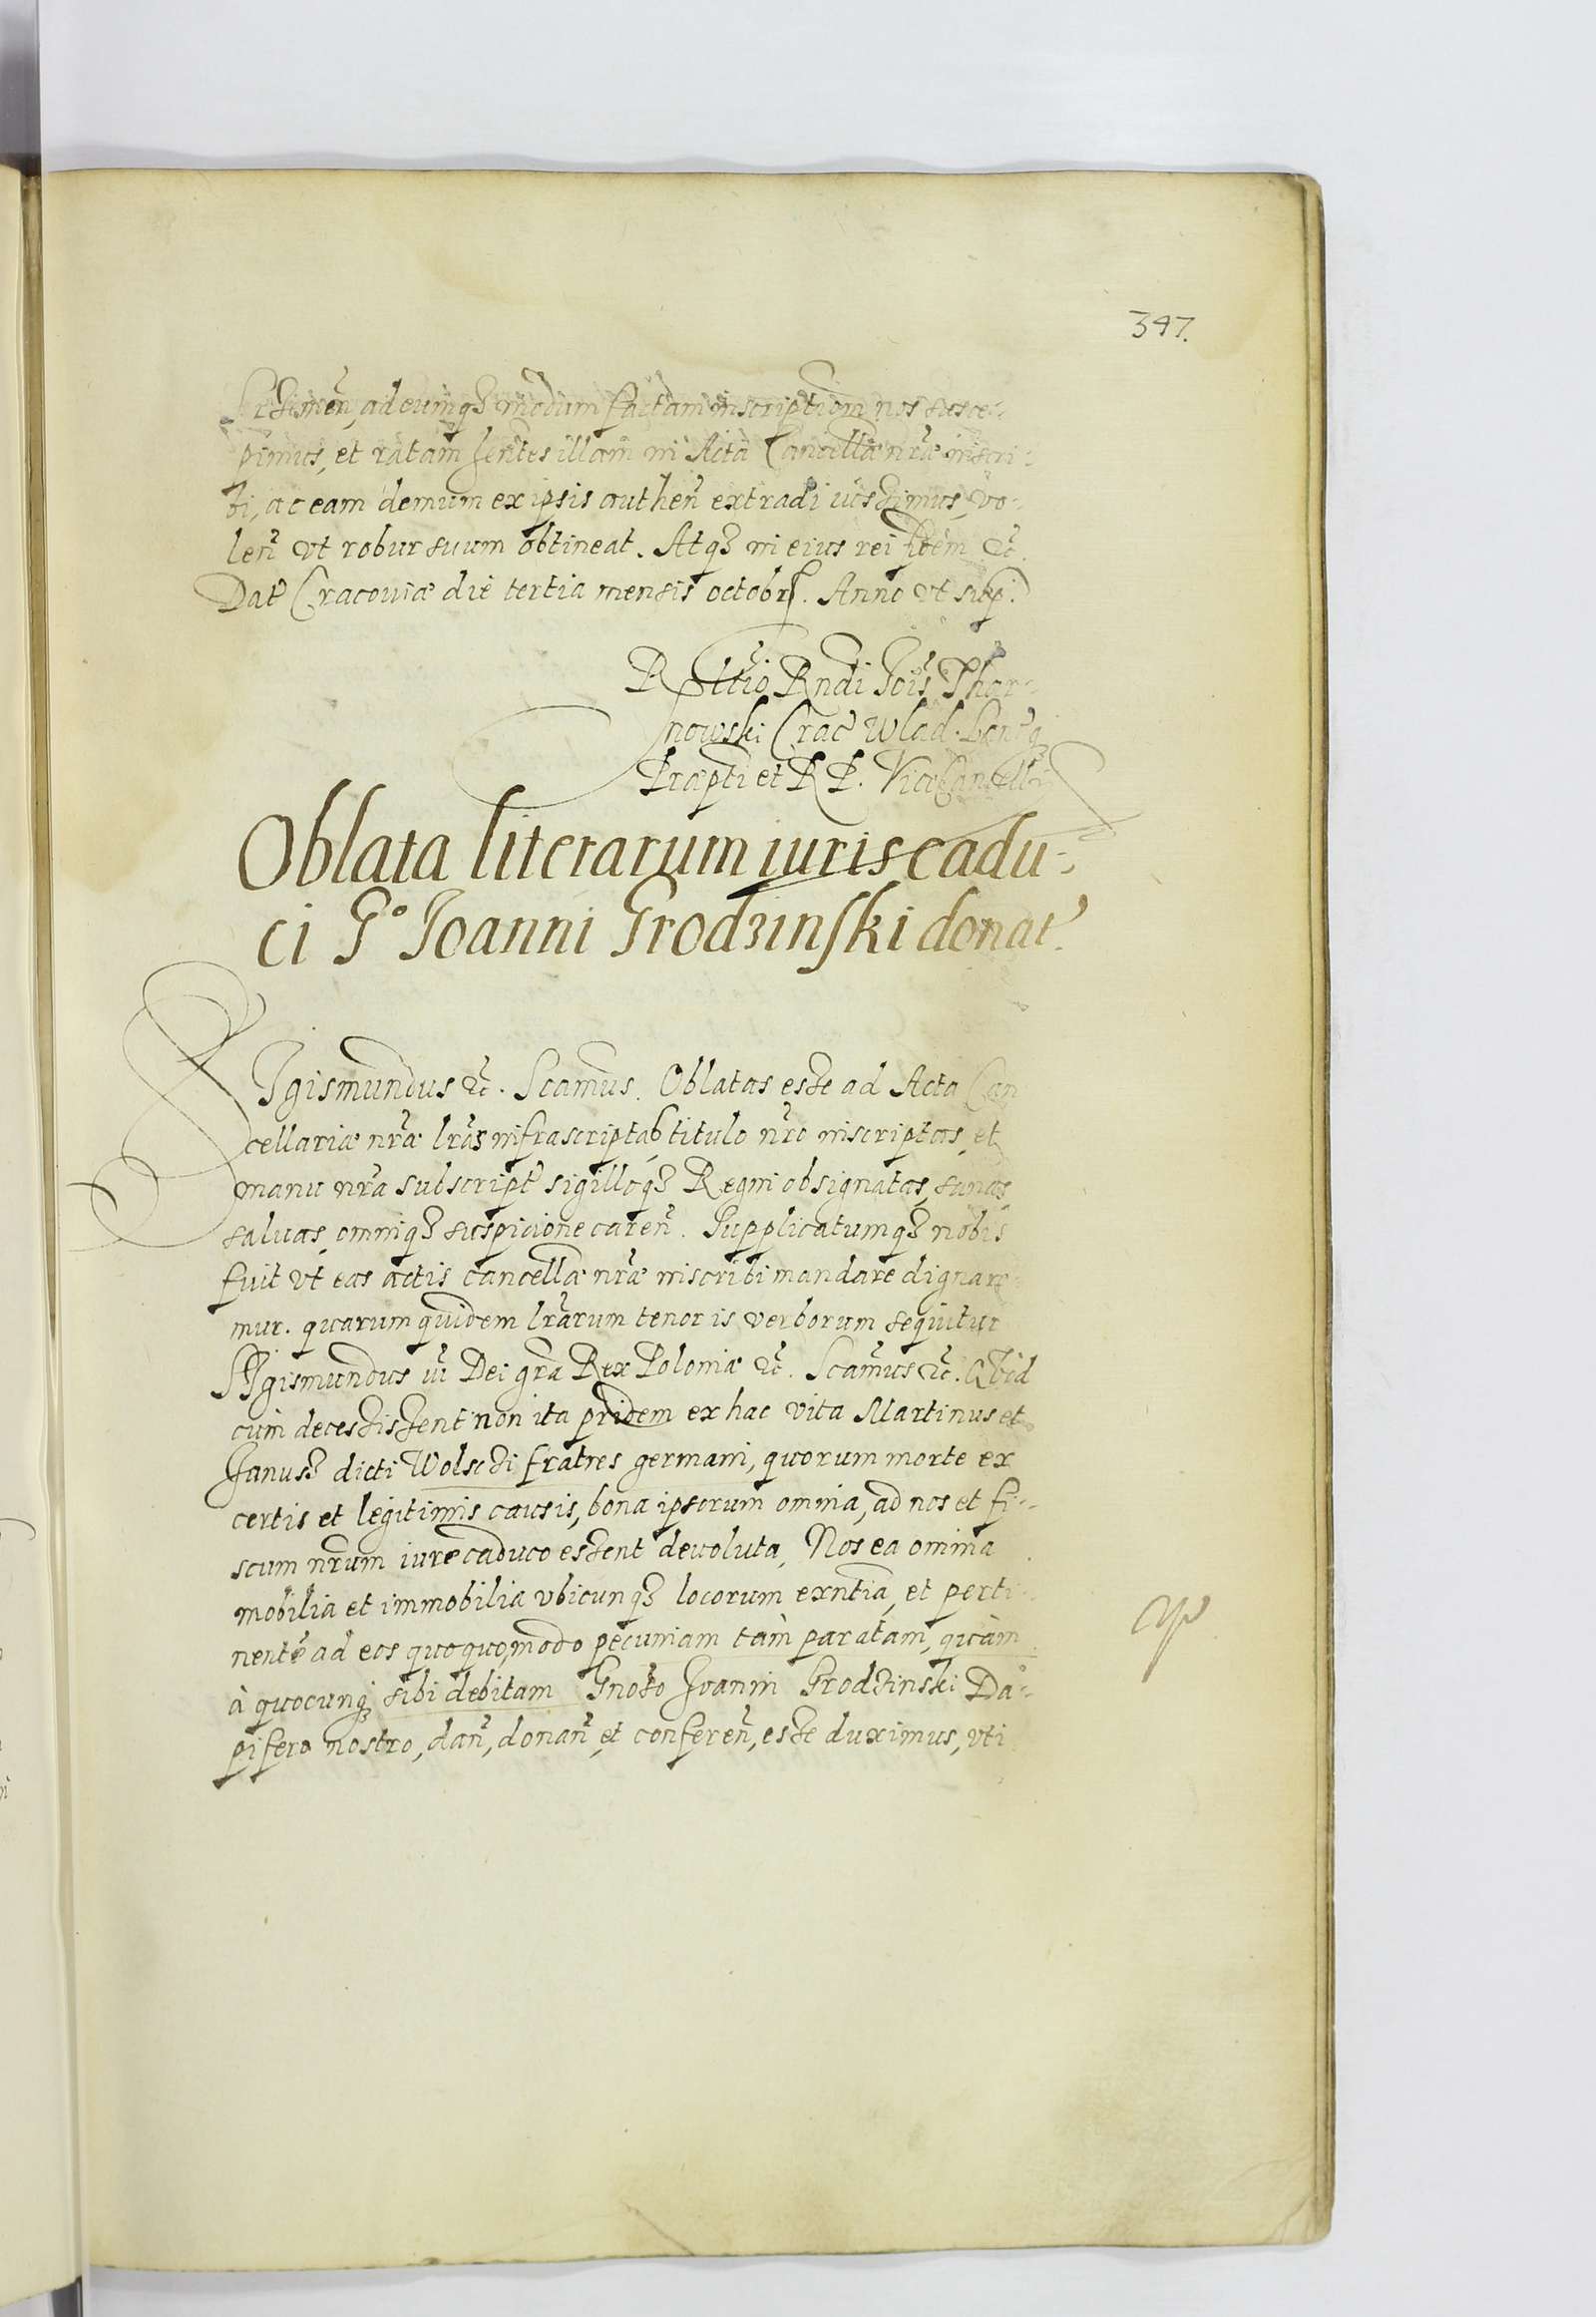 347.
ad eumq3 modum factam inscriptiom nos susce-
pimus, et ratam hentes illam in Acta Cancellæ nræ inscri-
bi, ac eam demum ex ipsis authen extradi iussimus, vo-
len vt robur suum obtineat. Atq3 in eius rei fidem &c.
Dat Cracouiæ die tertia mensis octobris. Anno vt sup.
R Rndi Jois Thar-
nowski Crac Wlad. Lanc q3
Præpti et R P. ViceCancellri
Oblata literarum iuris cadu-
ci G° Joanni Grodzinski donat.
SIgismundus &c. Scamus. Oblatas esse ad Acta Can
cellariæ nræ lras infrascriptas titulo nro inscriptas, et
manu nra subscript sigilloq3 Regni obsignatas, sanas
saluas, omniq3 suspicione caren. Supplicatumq3 nobis
fuit vt eas actis cancellæ nræ inscribi mandare dignare-
mur. quarum quidem lrarum tenor is verborum sequitur
SIgismundus III Dei gra Rex Poloniæ &c. Scamus &c. Quod
cum decessissent non ita pridem ex hac vita Martinus et
Janus3 dicti Wolscÿ fratres germani, quorum morte ex
certis et legitimis causis, bona ipsorum omnia, ad nos et fi-
scum nrum iure caduco essent deuoluta, Nos ea omnia
mobilia et immobilia vbicunq3 locorum exntia, et perti-
nente ad eos quoquomodo pecuniam tàm paratam, quàm
à quocunq3 sibi debitam Gnoso Joanni Grodzinski Da-
pifero nostro, dan, donan, et conferen, esse duximus, vti